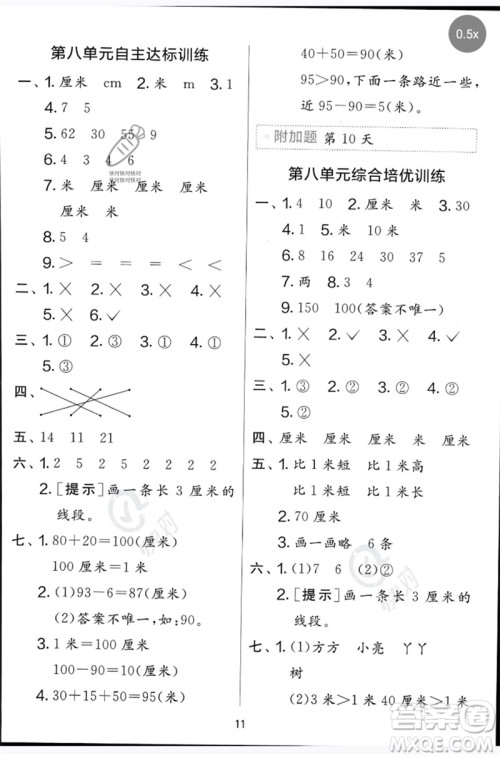 0.5x
第八单元自主达标训练
一、1.厘米 cm 2.米 m 3.1
4.7 5
5.62 30 55 9
6.4 3 4 4
7.米 厘米 厘米 厘米
厘米 厘米
8.5 4
9.＞ ＝ ＝ ＜ ＜ ＜
二、1.╳ 2.╳ 3.╳ 4.✓
5.╳ 6.✓
三、1.① 2.② 3.③ 4.①
5.③
四、
五、14 11 21
六、1.2 5 2 2 2 2 2
2.[提示]画一条长 3 厘米的
线段。
七、1.80＋20＝100(厘米)
100 厘米＝1 米
2.(1)93－6＝87(厘米)
(2)答案不唯一,如:90。
3.1 米＝100 厘米
100－90＝10(厘米)
4.30＋15＋50＝95(米)
40＋50＝90(米)
95＞90,下面一条路近一些,
近 95－90＝5(米)
附加题 第 10 天
第八单元综合培优训练
一、1.4 10 2.厘米 米 3.30
4.1 5.米 厘米 米
6.8 16 24 30 37 5
7.两 8.3
9.150 100(答案不唯一)
二、1.╳ 2.╳ 3.✓ 4.✓
5.╳
三、1.② 2.③ 3.② 4.②
5.②
四、厘米 米 厘米 厘米
五、1.比 1 米短 比 1 米高
比 1 米长 比 1 米短
2.70 厘米
3.画一画略 6 条
六、1.(1)7 6 (2)②
2.[提示]画一条长 3 厘米的
线段。
七、1.(1)方方 小亮 丫丫
树
(2)3米＞1米 40 厘米＞1
11
快对快对快对
快对快对快对
答案圈